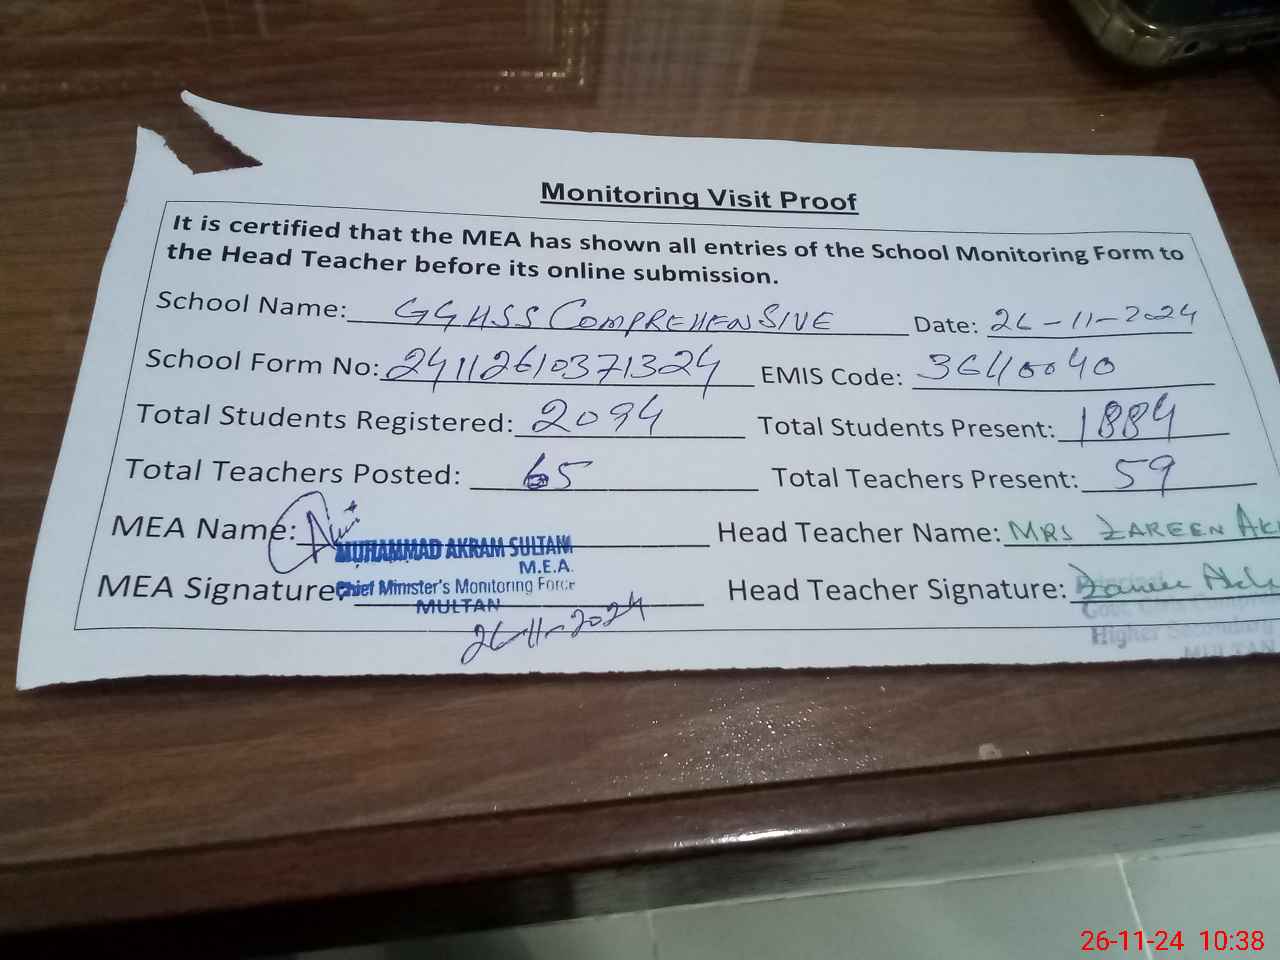 Monitoring Visit Proof
It is certified that the MEA has shown all entries of the School Monitoring Form to
the Head Teacher before its online submission.
School Name: GGHSS COMPREHENSIVE Date: 26-11-2024
School Form No: 24112610371324 EMIS Code: 36110040
Total Students Registered: 2094 Total Students Present: 1884
Total Teachers Posted: 65 Total Teachers Present: 59
MEA Name: Head Teacher Name: MRS ZAREEN
MUHAMMAD AKRAM SULTAN
M.E.A.
MEA Signature: Chief Minister's Monitoring Force Head Teacher Signature:
MULTAN
26-11-2024
Higher Secondary
MULTAN
26-11-24 10:38